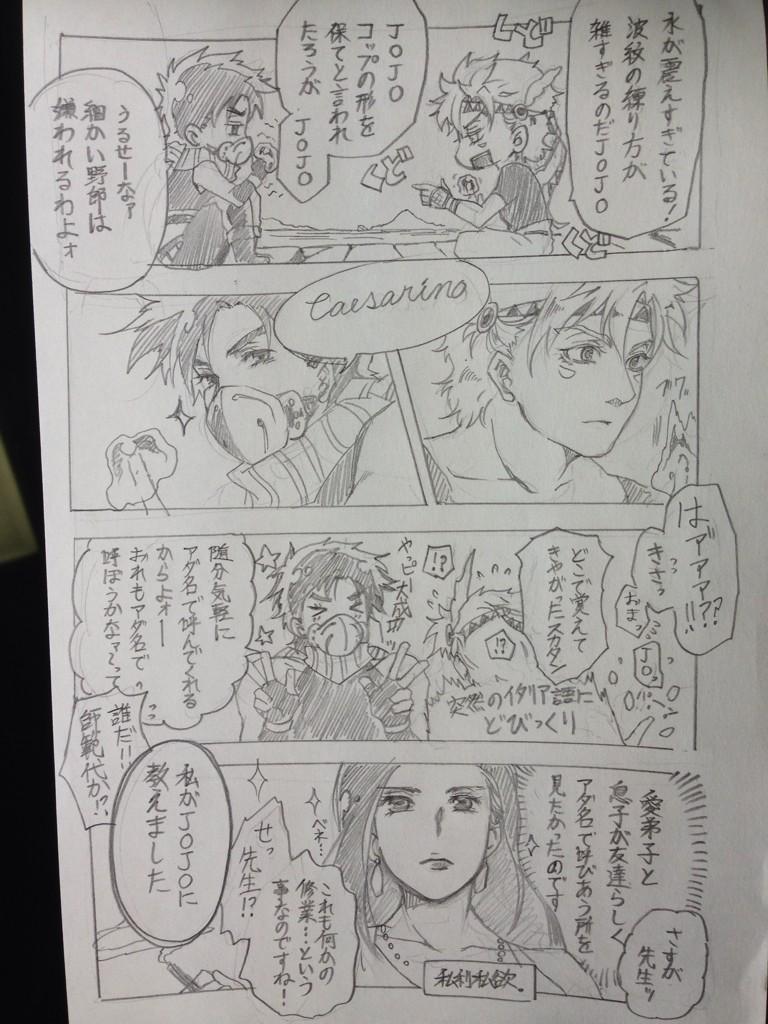 水が震えすぎている!
波紋の練り方が
雑すぎるのだJOJO
くど
くど
くど
JOJO
コップの形を
保てと言われ
たろうが
JOJO
うるせーなァ
細かい野郎は
嫌われるわよォ
Caesarino
はァァァ??!!
きさっ
おまっ
JO
どこで覚えて
きやがったスカタン
!?
!?
突然のイタリア語に
どびっくり
ヤッピー大成功ッ
随分気軽に
アダ名で呼んでくれる
からよォー
おれもアダ名で
呼ぼうかなァ〜って
誰だ!!
師範代か!?
愛弟子と
息子が友達らしく
アダ名で呼びあう所を
見たかったのです
さすが
先生ッ
ベネ…
これも何かの
修業…という
事なのですね!
せっ
先生!?
私がJOJOに
教えました
私利私欲。